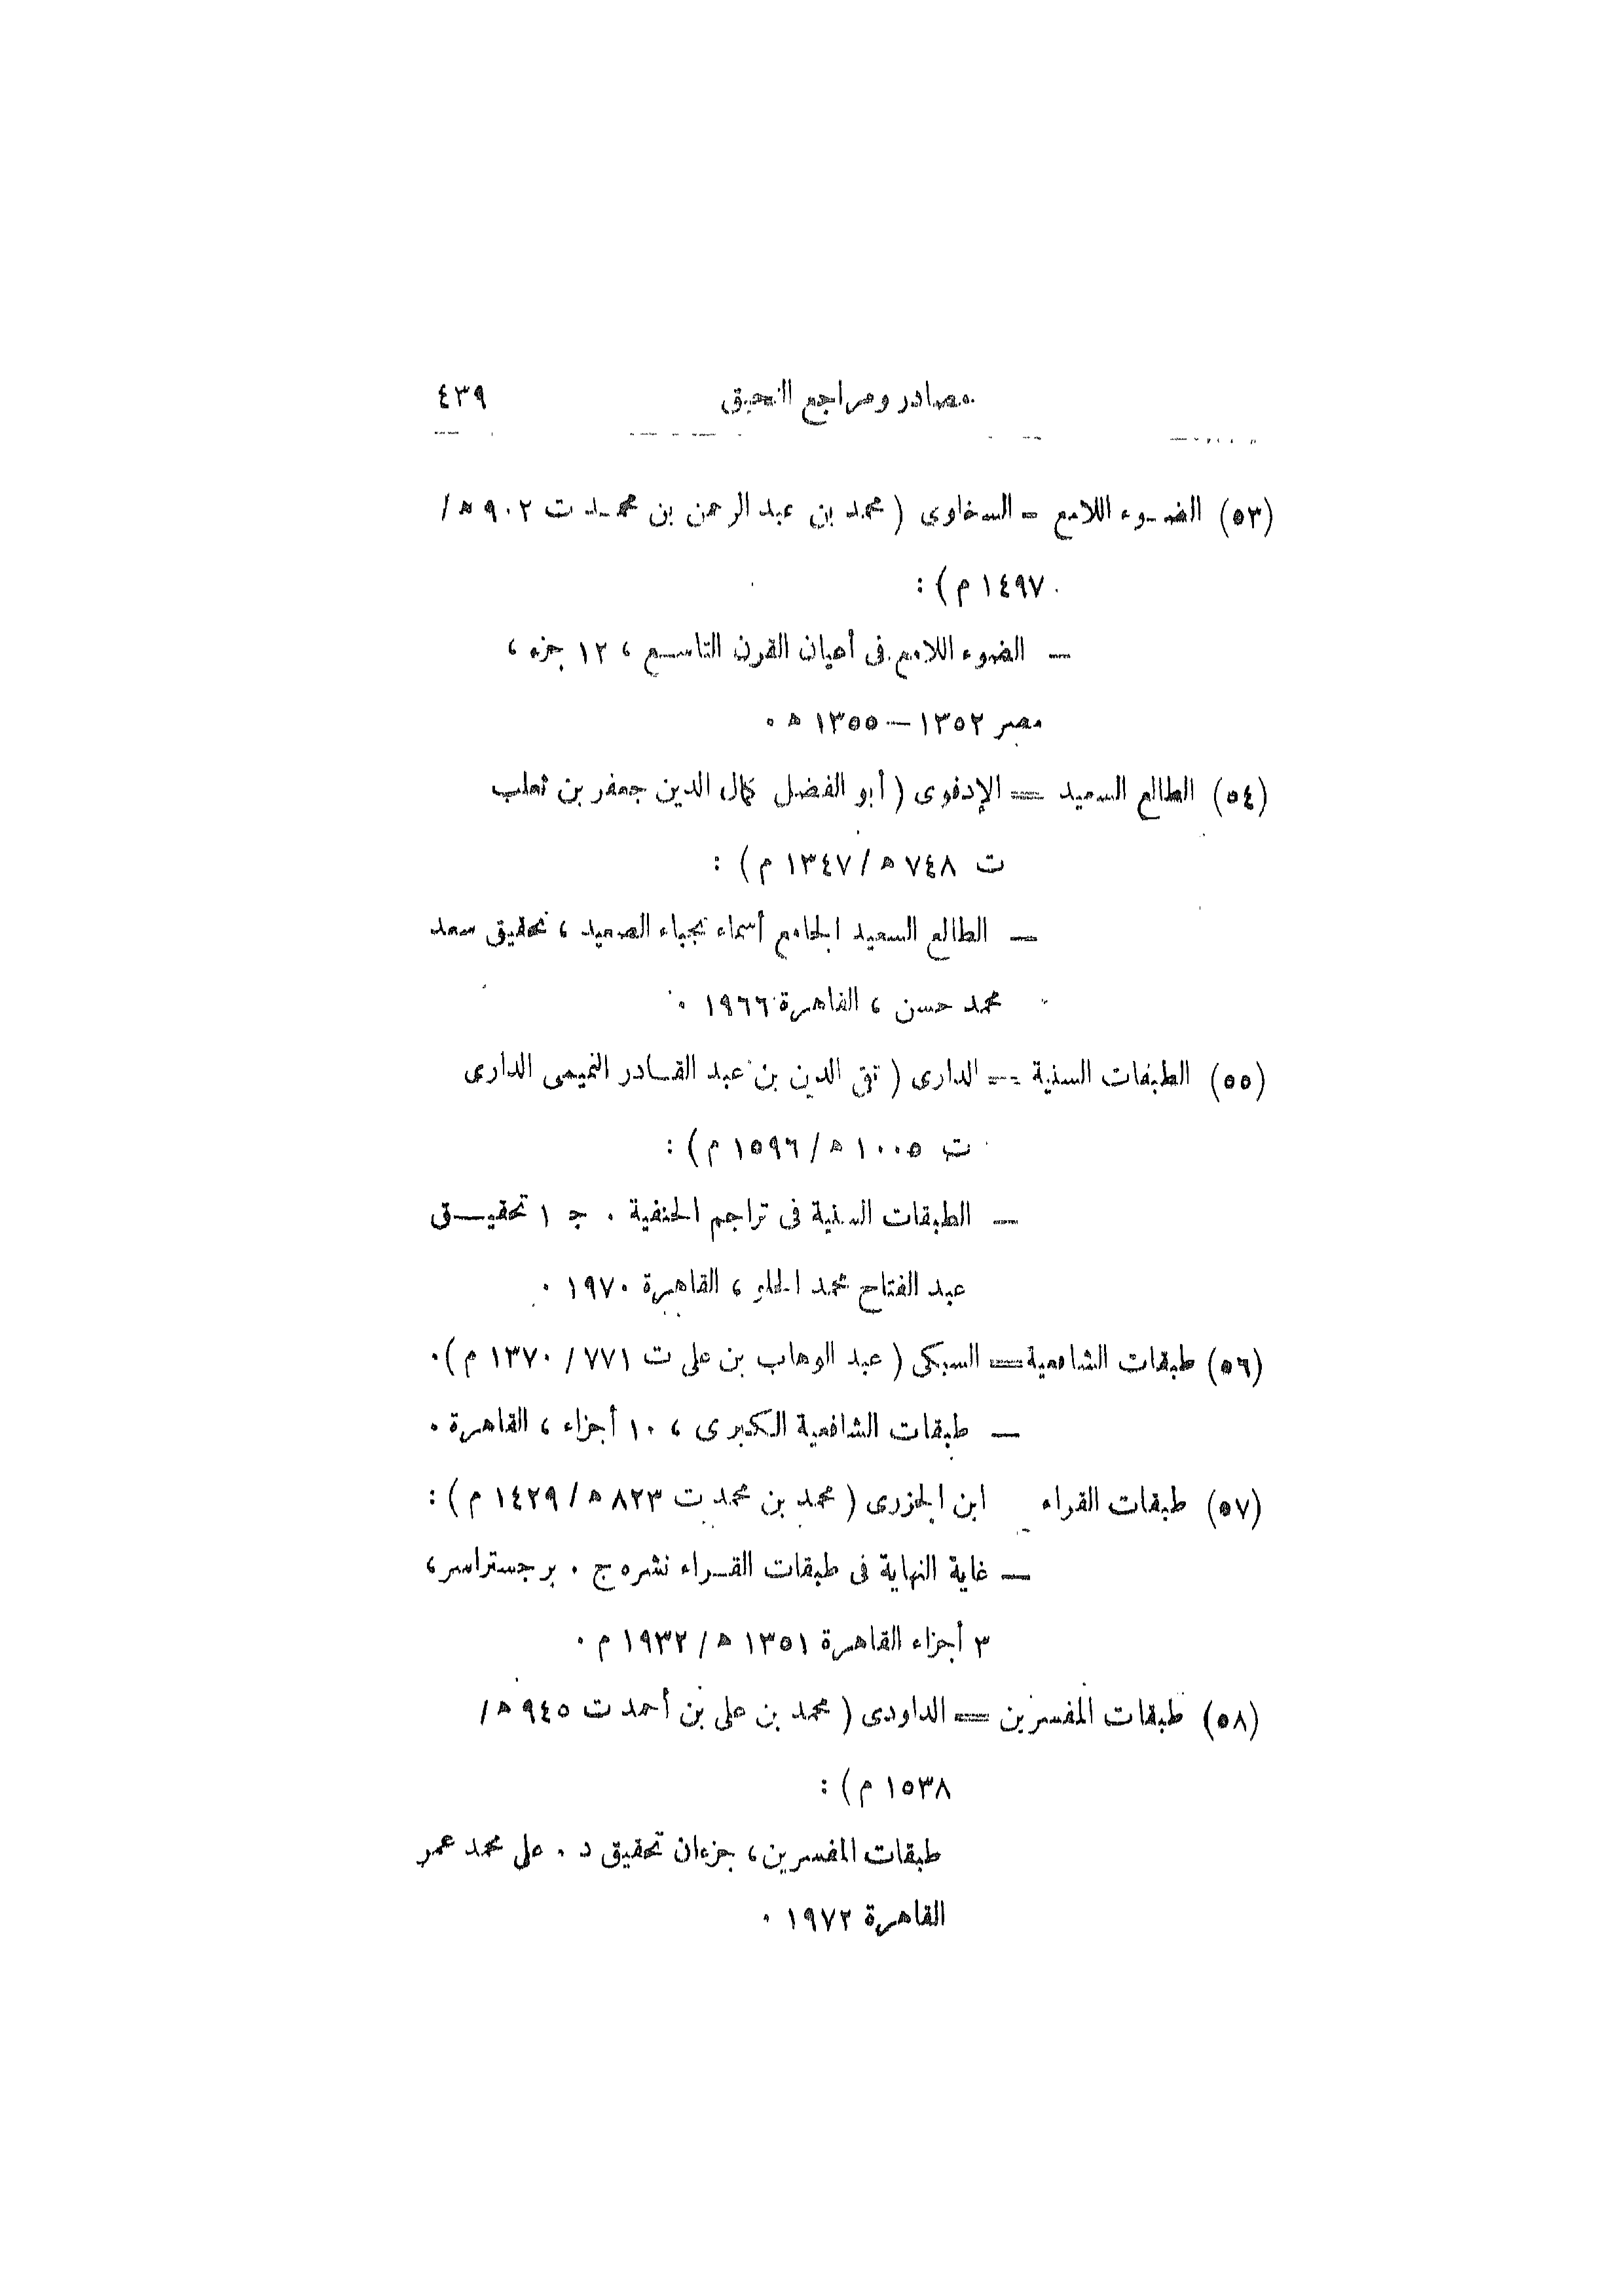 مصادر ومراجع التحقيق ٤٣٩
(٥٣) الضوء اللامع = السخاوى ( محمد بن عبد الرحمن بن محمد ت ٩٠٢ هـ/
١٤٩٧ م ) :
— الضوء اللامع فى أعيان القرن التاسع ، ١٢ جزء ،
مصر ١٣٥٢ — ١٣٥٥ هـ .
(٥٤) الطالع السعيد = الإدفوى ( أبو الفضل كمال الدين جعفر بن ثعلب
ت ٧٤٨ هـ / ١٣٤٧ م ) :
— الطالع السعيد الجامع أسماء نجباء الصعيد ، تحقيق سعد
محمد حسن ، القاهرة ١٩٦٦ .
(٥٥) الطبقات السنية = الدارى ( تقى الدين بن عبد القادر التميمى الدارى
ت ١٠٠٥ هـ / ١٥٩٦ م ) :
— الطبقات السنية فى تراجم الحنفية . جـ ١ تحقيق
عبد الفتاح محمد الحلو ، القاهرة ١٩٧٠ .
(٥٦) طبقات الشافعية = السبكى ( عبد الوهاب بن على ت ٧٧١ / ١٣٧٠ م ) .
— طبقات الشافعية الكبرى ، ١٠ أجزاء ، القاهرة .
(٥٧) طبقات القراء ابن الجزرى ( محمد بن محمد ت ٨٢٣ هـ / ١٤٢٩ م ) :
— غاية النهاية فى طبقات القراء نشره ج . برجستراسر ،
٣ أجزاء القاهرة ١٣٥١ هـ / ١٩٣٢ م .
(٥٨) طبقات المفسرين = الداودى ( محمد بن على بن أحمد ت ٩٤٥ هـ /
١٥٣٨ م ) :
طبقات المفسرين ، جزءان تحقيق د . على محمد عمر
القاهرة ١٩٧٢ .